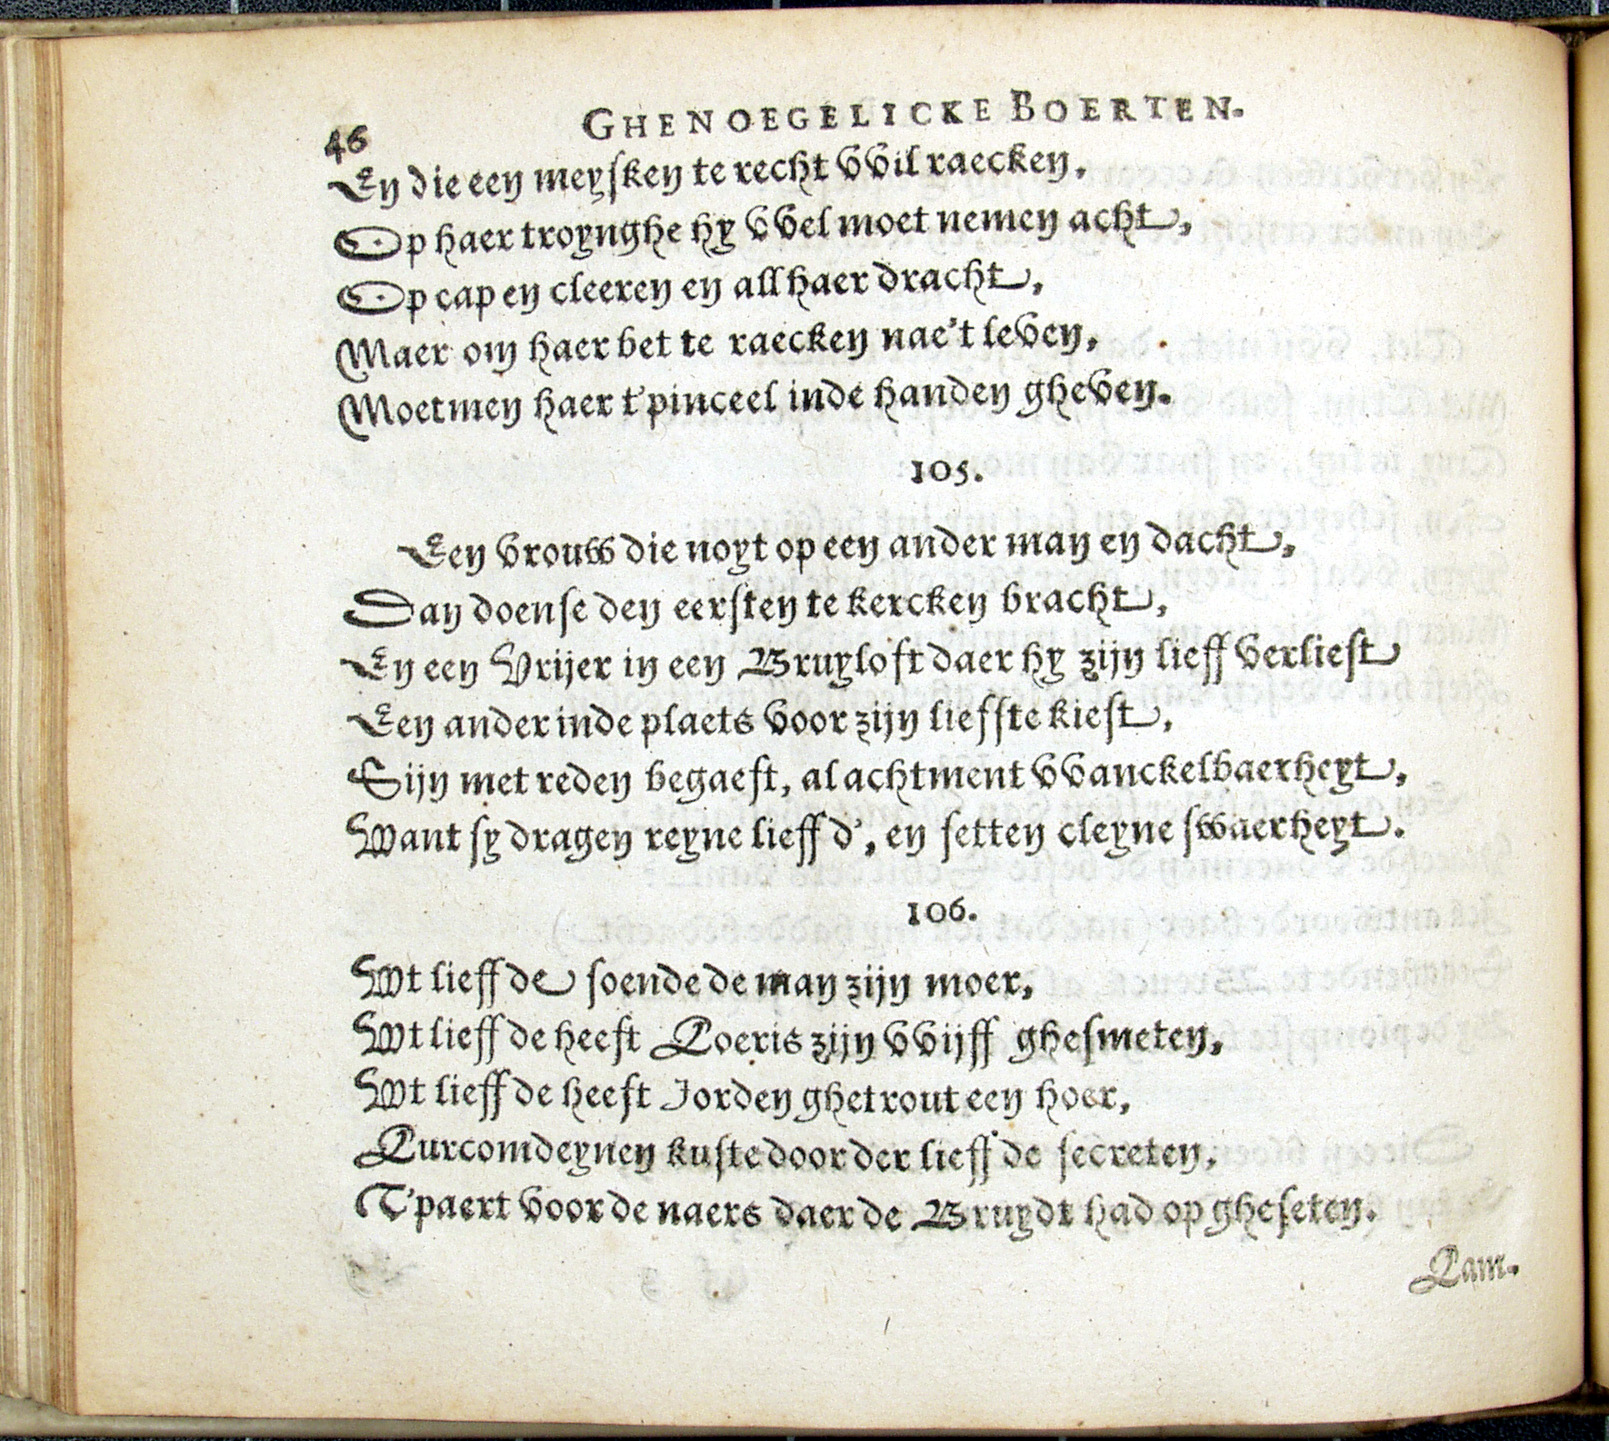 46
GHENOEGELICKE BOERTEN.
En die een meysken te recht vvil raecken,
Op haer troynghe hy vvel moet nemen acht,
Op cap en cleeren en all haer dracht,
Maer om haer bet te raecken nae't leven,
Moetmen haer t'pinceel inde handen gheven.
105.
Een vrouw die noyt op een ander man en dacht,
Dan doense den eersten te kercken bracht,
En een Vrijer in een Bruyloft daer hy zijn lieff verliest
Een ander inde plaets voor zijn liefste kiest,
Sijn met reden begaeft, al achtment vvanckelbaerheyt,
Want sy dragen reyne lieff d', en setten cleyne swaerheyt.
106.
Wt lieff de soende de man zijn moer,
Wt lieff de heeft Coeris zijn vvijff ghesmeten,
Wt lieff de heeft Jorden ghetrout een hoer,
Curcomdeynen kuste door der lieff de secreten,
T'paert voor de naers daer de Bruydt had op gheseten.
Cam-